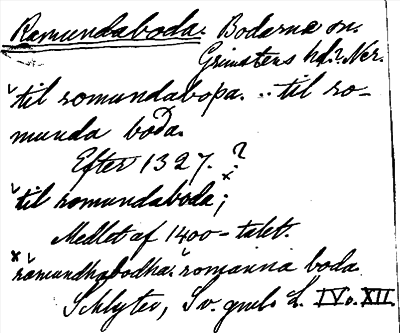 Ramundaboda. Boderne sn.
Grimstens hd.? Ner.
til romundaboþa. .. til ro-
munda boða.
Efter 1327. ?
til romundaboda;
Medlet af 1400-talet.
ramundhabodha. romanna boda
Schlyter, Sv. gml. L. IV o. XII.